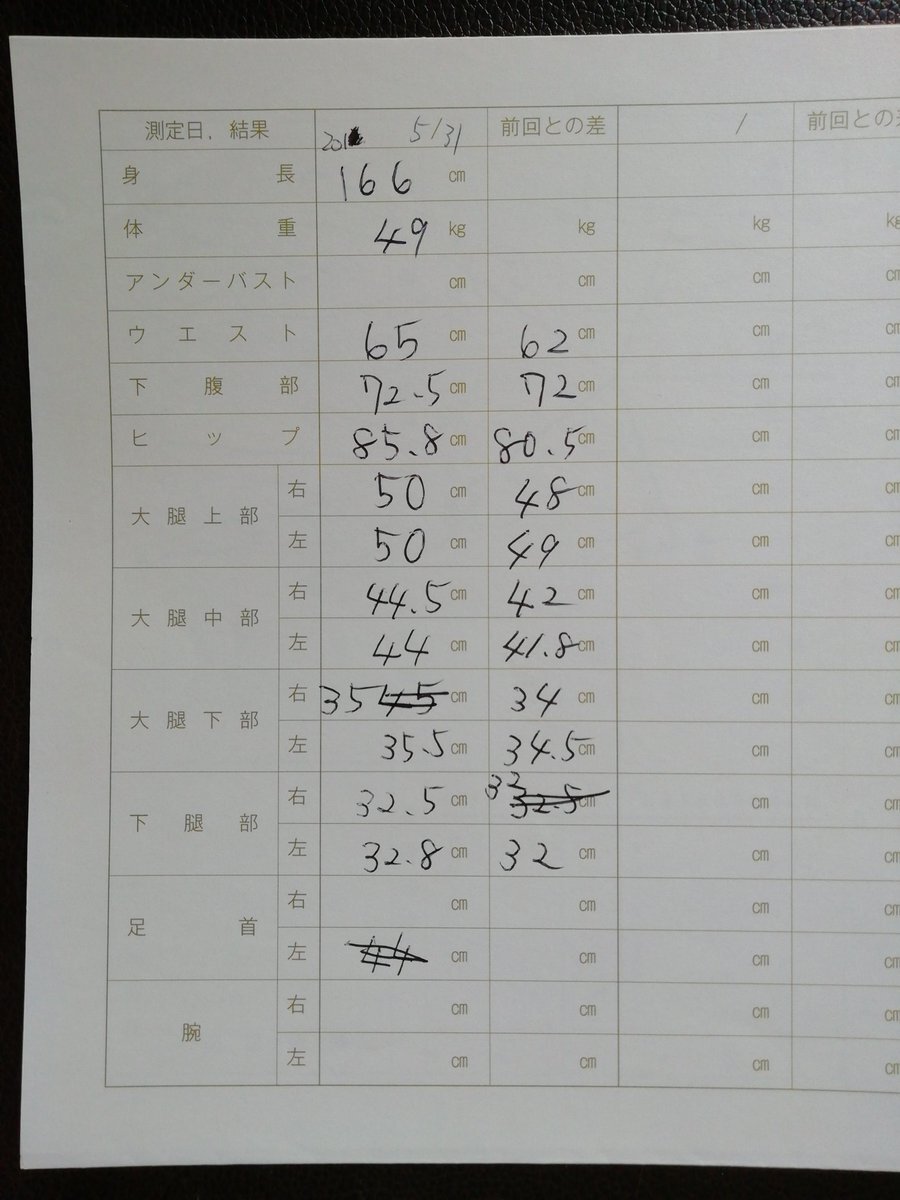 測定日．結果 201 5/31 前回との差 / 前回との差
身長 166 cm
体重 49 kg kg kg kg
アンダーバスト cm cm cm cm
ウエスト 65 cm 62 cm cm cm
下腹部 72.5 cm 72 cm cm cm
ヒップ 85.8 cm 80.5 cm cm cm
大腿上部 右 50 cm 48 cm cm cm
左 50 cm 49 cm cm cm
大腿中部 右 44.5 cm 42 cm cm cm
左 44 cm 41.8 cm cm cm
大腿下部 右 35 cm 34 cm cm cm
左 35.5 cm 34.5 cm cm cm
下腿部 右 32.5 cm 32 32.5 cm cm cm
左 32.8 cm 32 cm cm cm
足首 右 cm cm cm cm
左 44 cm cm cm cm
腕 右 cm cm cm cm
左 cm cm cm cm